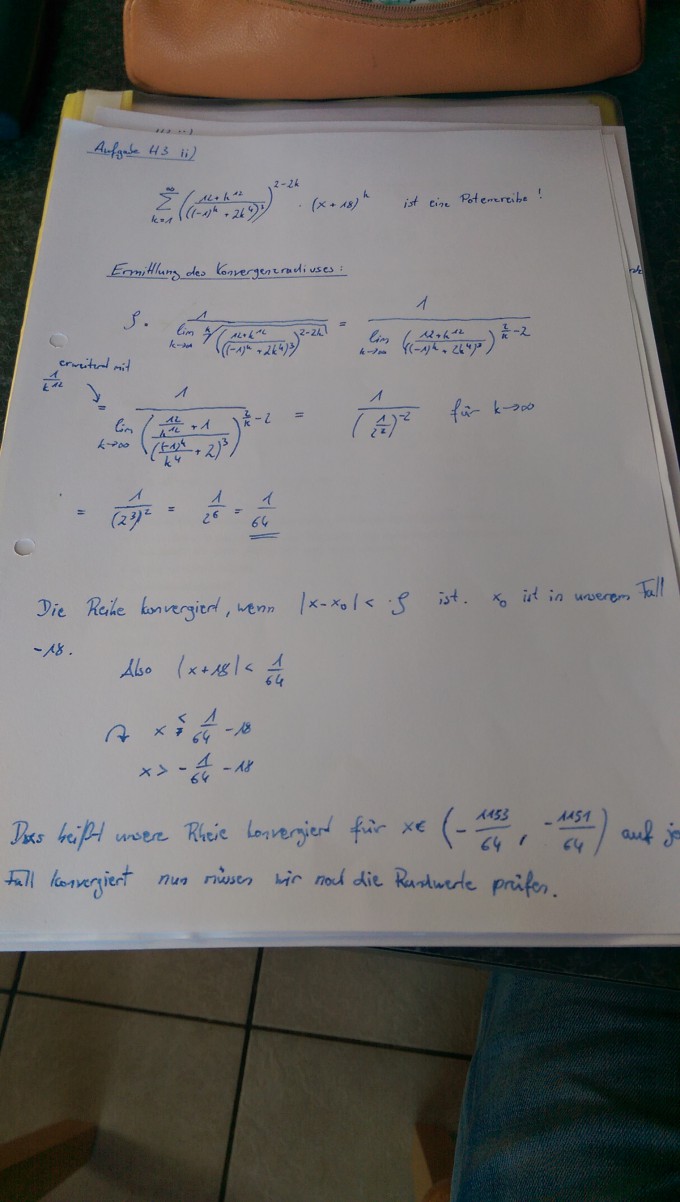 Aufgabe H3 ii)
∑_{k=1}^{∞} ((12+k^{12})/((-1)^k + 2k^4)^3)^{2-2k} · (x+18)^k ist eine Potenzreihe!
Ermittlung des Konvergenzradiuses:
ρ = 1/(lim_{k→∞} \sqrt[k]{((12+k^{12})/((-1)^k + 2k^4)^3)^{2-2k}}) = 1/(lim_{k→∞} ((12+k^{12})/((-1)^k + 2k^4)^3)^{2/k - 2})
erweiternd mit 1/k^{12}
= 1/(lim_{k→∞} ((12/k^{12} + 1)/((-1)^k/k^4 + 2)^3)^{2/k - 2}) = 1/(1/2^3)^{-2} für k→∞
= 1/(2^3)^2 = 1/2^6 = 1/64
Die Reihe konvergiert, wenn |x-x_0| < ρ ist. x_0 ist in unserem Fall
-18.
Also |x+18| < 1/64
x < 1/64 - 18
x > - 1/64 - 18
Das heißt unsere Rheie konvergiert für x∈ (- 1153/64 , - 1151/64) auf
Fall konvergiert nun müssen wir noch die Randwerte prüfen.